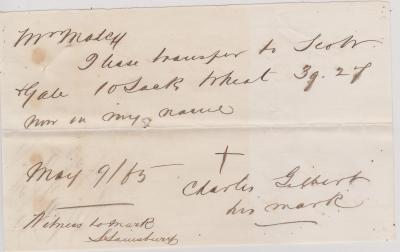 Mr
Please transfer to Scott
& Gale 10 Sack Wheat 39.27
now in my name
May 9/65
Charles Gilbert
his mark
Witness to mark